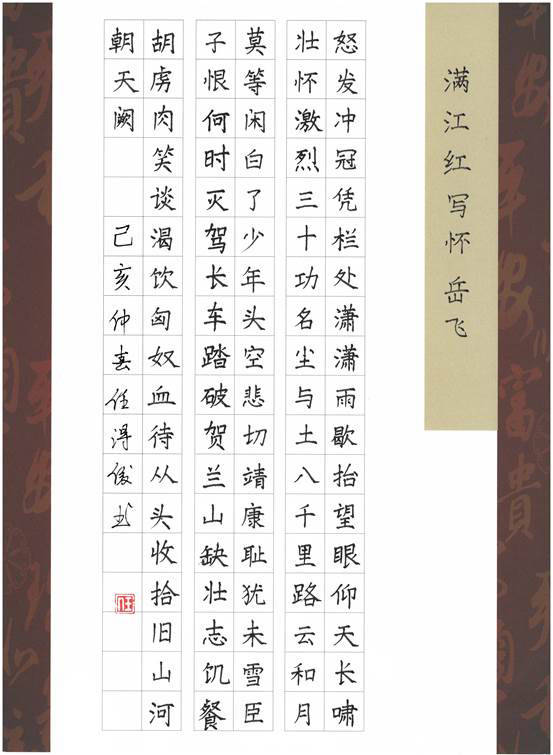 满江红写怀岳飞
怒发冲冠凭栏处潇潇雨歇抬望眼仰天长啸
壮怀激烈三十功名尘与土八千里路云和月
莫等闲白了少年头空悲切靖康耻犹未雪臣
子恨何时灭驾长车踏破贺兰山缺壮志饥餐
胡虏肉笑谈渴饮匈奴血待从头收拾旧山河
朝天阙
己亥仲春任得俊书
富貴